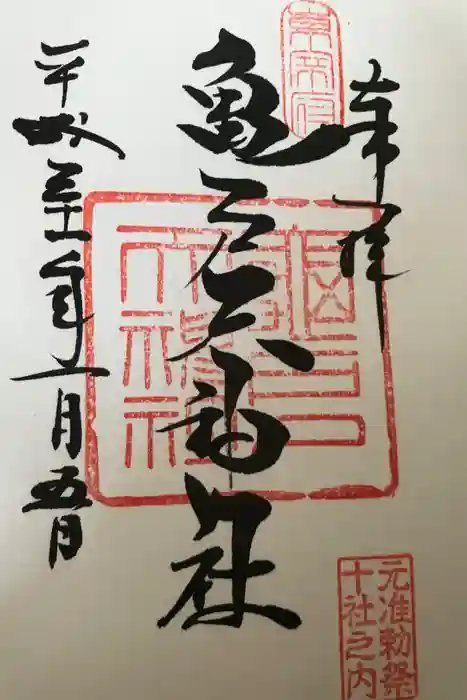 東宰府
奉拝
亀戸天神社
平成三十年一月五日
元准勅祭
十社之内